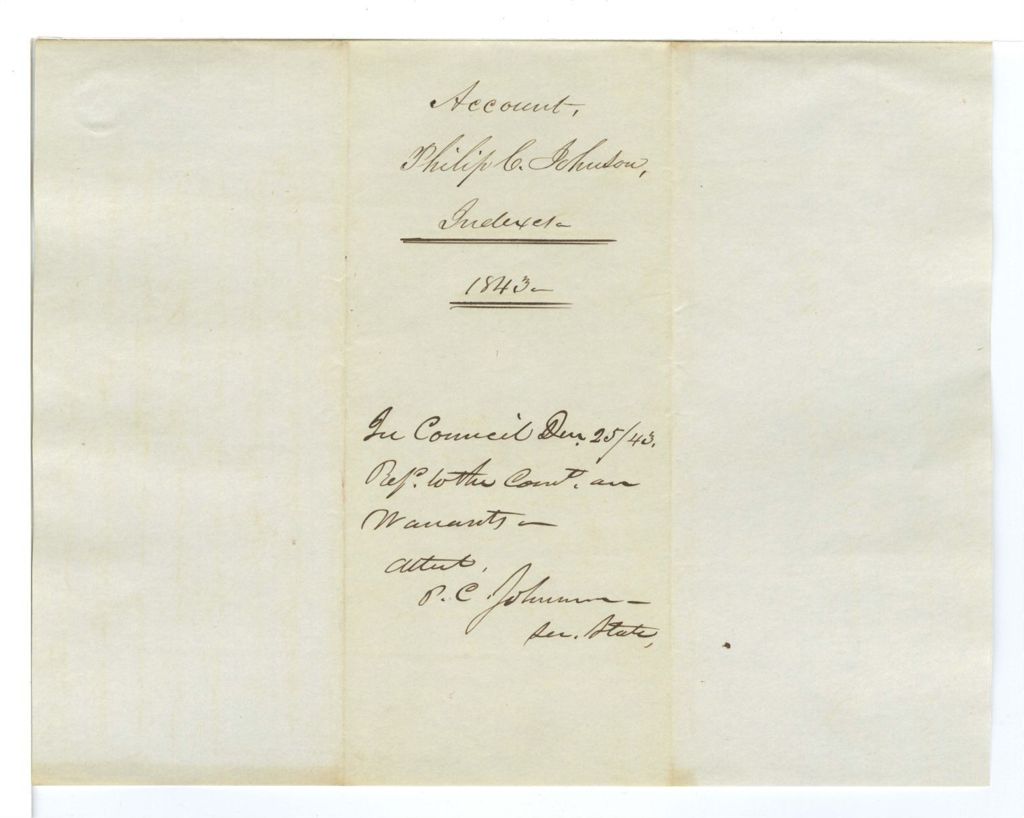 Account,
Philip C. Johnson,
Indexes
1843
In Council Dec. 25/43.
Ref. to the Comt. on
Warrants
attest,
P. C. Johnson
Sec. State,